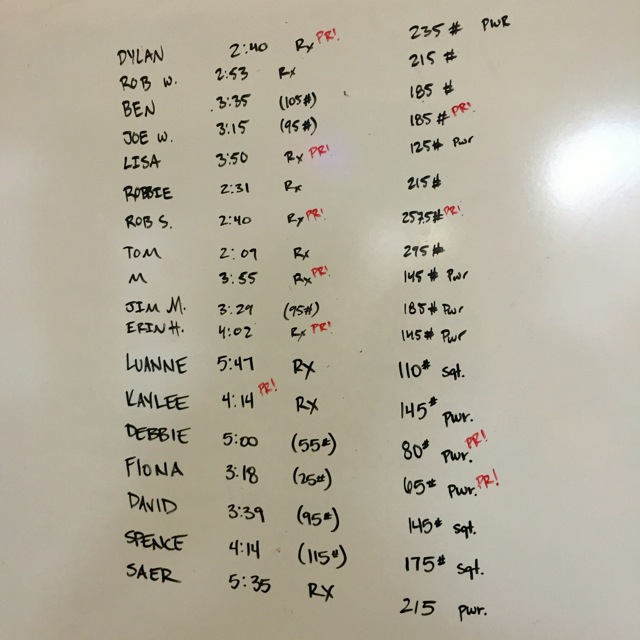 DYLAN 2:40 Rx PR! 235# PWR
ROB W. 2:53 Rx 215#
BEN 3:35 (105#) 185#
JOE W. 3:15 (95#) 185# PR!
LISA 3:50 Rx PR! 125# Pwr
ROBBIE 2:31 Rx 215#
ROB S. 2:40 Rx PR! 257.5# PR!
TOM 2:09 Rx 295#
M 3:55 Rx PR! 145# Pwr
JIM M. 3:29 (95#) 185# Pwr
ERIN H. 4:02 Rx PR! 145# Pwr
LUANNE 5:47 RX 110# sqt.
KAYLEE 4:14 PR! RX 145# pwr.
DEBBIE 5:00 (55#) 80# pwr. PR!
FIONA 3:18 (25#) 65# pwr. PR!
DAVID 3:39 (95#) 145# sqt.
SPENCE 4:14 (115#) 175# sqt.
SAER 5:35 RX 215 pwr.